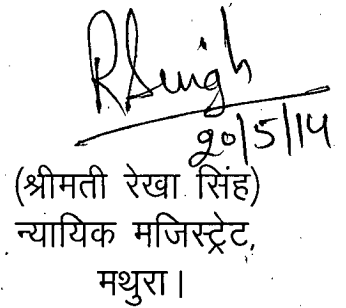 RSingh
20/5/14
(श्रीमती रेखा सिंह)
न्यायिक मजिस्ट्रेट,
मथुरा।